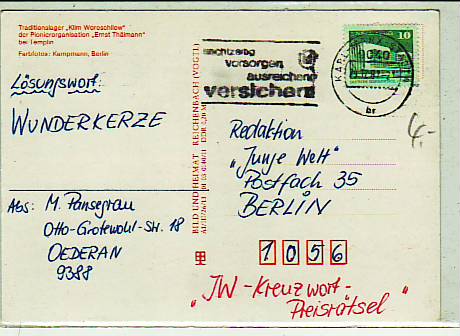 Traditionslager „Klim Woroschilow"
der Pionierorganisation „Ernst Thälmann"
bei Templin
Farbfotos: Kampmann, Berlin
Lösungswort:
WUNDERKERZE
Abs: M. Pansegrau
Otto-Grotewohl-Str. 18
OEDERAN
9388
BILD UND HEIMAT REICHENBACH (VOGTL)
rechtzeitig
vorsorgen
ausreichend
versichern
KARL
br
10
4,-
Redaktion
„Junge Welt"
Postfach 35
BERLIN
1 0 5 6
„JW-Kreuzwort-
Preisrätsel"